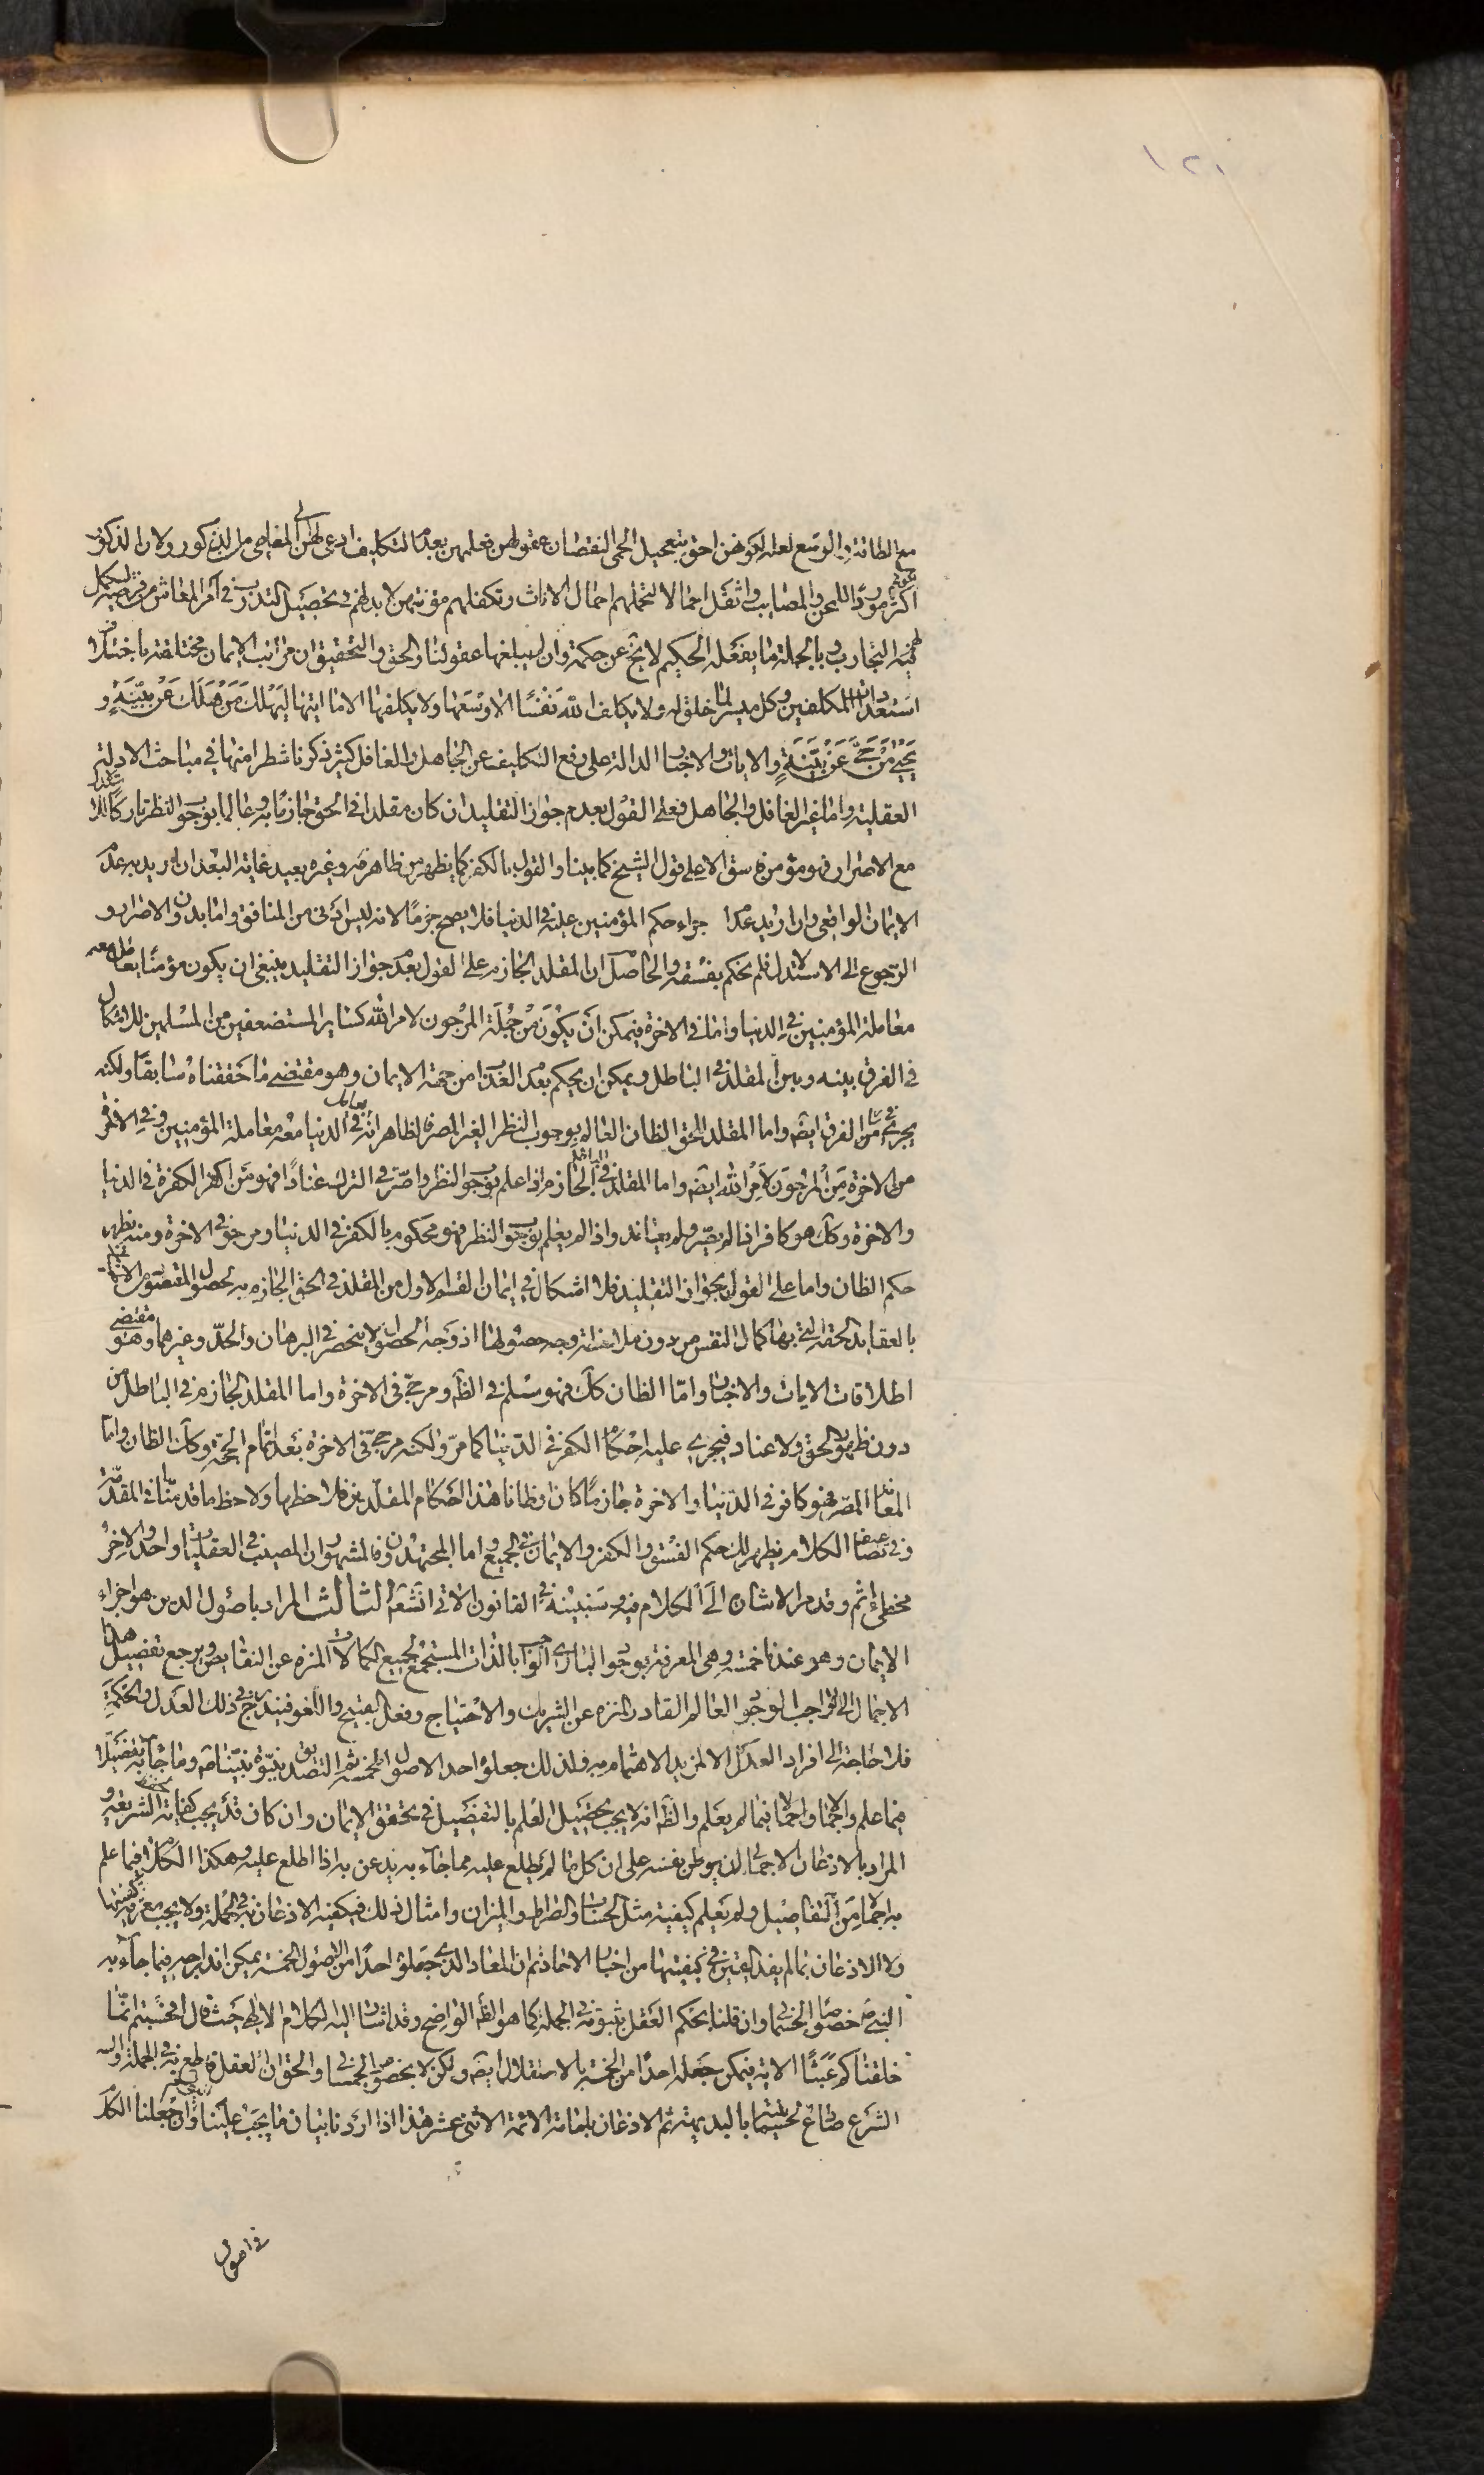 ١٢١
مع الطاقة والوسع لعله لكونهن احوج بتعجيل الحمى لنقصان عقولهن فعلمهن بعدم التكليف ادعى لهن الى المعاصى من الذكور ولان الذكور
اكثرهم موردا للمحن والمصايب واثقل احمالا لتحملهم احمال الاناث وتكفلهم مؤنتهن لا بد لهم فى تحصيل التدرب فى امر المعاش من فرصة ليكمل
لهم فيه التجارب وبالجملة ما يفعله الحكيم لا يخ عن حكمة وان لم يبلغها عقولنا والحق والتحقيق ان مراتب الايمان مختلفة باختلاف
استعدادات المكلفين وكل ميسر لما خلق له ولا يكلف الله نفسا الا وسعها ولا يكلفها الا ما اتيها ليهلك من هلك عن بينة و
يحيى من حى عن بينة والايات والاخبار الدالة على رفع التكليف عن الجاهل والغافل كثير ذكرنا شطرا منها فى مباحث الادلة
العقلية واما غير الغافل والجاهل فعلى القول بعدم جواز التقليد ان كان مقلدا فى الحق جازما به وعالما بوجوب النظر تاركا له
مع الاصرار فهو مؤمن فاسق الا على قول الشيخ كما بينا والقول بالكفر كما يظهر من ظاهر مر وغيره بعيد غاية البعد ان اريد به عدم
الايمان الواقعى وان اريد عدم اجراء حكم المؤمنين عليه فى الدنيا فلا يصح جزما لانه ليس بادنى من المنافق واما بدون الاصرار و
الرجوع الى الاستدلال فلم يحكم بفسقه والحاصل ان المقلد الجازم على القول بعدم جواز التقليد ينبغى ان يكون مؤمنا يعامل معه
معاملة المؤمنين فى الدنيا واما فى الاخرة فيمكن ان يكون من جملة المرجون لامر الله كساير المستضعفين من المسلمين للاشكال
فى الفرق بينه وبين المقلد فى الباطل ويمكن ان يحكم بعدم العذاب من جهة الايمان وهو مقتضى ما حققناه سابقا ولكنه
يجرى فى الفرق ايضه واما المقلد للحق الظان العالم بوجوب النظر الغير المصر فالظاهر انه يعامل فى الدنيا معه معاملة المؤمنين وفى الاخرة
من الاخرة من المرجون لامر الله ايضه واما المقلد فى الباطل الجازم اذا علم بوجوب النظر واصر فى الترك عنادا فهو من اكفر الكفرة فى الدنيا
والاخرة وكك هو كافر اذا لم يصر ولم يعاند واذا لم يعلم بوجوب النظر فهو محكوم بالكفر فى الدنيا ومرجو فى الاخرة ومنه يظهر
حكم الظان واما على القول بجواز التقليد فلا اشكال فى ايمان القسم الاول من المقلد فى الحق الجازم به لحصول المقصود من الايمان
بالعقايد الحقة التى بها كمال النفس من دون ملاحظة وجه حصولها اذ وجه الحصول لا ينحصر فى البرهان والجدل وغيرهما وهو مقتضى
اطلاقات الايات والاخبار واما الظان كك فهو مسلم فى الظه ومرجى فى الاخرة واما المقلد الجازم فى الباطل من
دون ظهور الحق ولا عناد فيجرى عليه احكام الكفر فى الدنيا كما مر ولكنه مرجى فى الاخرة بعد اتمام الحجة وكك الظان واما
المعاند المصر فهو كافر فى الدنيا والاخرة جازما كان او ظانا هذا احكام المقلدين فلاحظها ولاحظ ما قدمنا فى المقدمة
وفى تضاعيف الكلام يظهر لك حكم الفسق والكفر والايمان فى الجميع واما المجتهدون فالمشهور ان المصيب فى العقليات واحد والاخر
مخطى اثم وقد مر الاشارة الى الكلام فيه وسنبينه فى القانون الاتى انشاء الله الثالث المراد باصول الدين هو اجزاء
الايمان وهو عندنا خمسة وهى المعرفة بوجود البارى الواجب بالذات المستجمع لجميع الكمالات المنزه عن النقايص ويرجع تفصيل هذا
الاجمال الى الواجب الوجود العالم القادر المنزه عن الشريك والاحتياج وفعل القبيح واللغو فيندرج فى ذلك العدل والحكمة
فلا حاجة الى افراد العدل الا لمزيد الاهتمام به ولذلك جعلوه احد الاصول الخمسة ثم التصديق بنبوة نبينا ص وبما جاء به تفصيلا
فيما علم واجمالا فيما لم يعلم والظه انه لا يجب تحصيل العلم بالتفصيل فى تحقق الايمان وان كان قد يجب كفاية لحفظ الشريعة و
المراد بالاذعان الاجمالى ان يوطن نفسه على ان كل ما لم يطلع عليه مما جاء به يذعن به اذا اطلع عليه وهكذا الكلام فيما علم
به اجمالا من التفاصيل ولم يعلم كيفيته مثل الحساب والصراط والميزان وامثال ذلك فيكفيه الاذعان به فى الجملة ولا يجب معرفة كيفيتها
ولا الاذعان بما لم يفد اليقين فى كيفيتها من اخبار الاحاد ثم ان المعاد الذى جعلوه احدا من الاصول الخمسة يمكن اندراجه فيما جاء به
النبى ص خصوصا الجسمانى وان قلنا بحكم العقل بثبوته فى الجملة كما هو الظه الواضح وقد اشار اليه الكلام الالهى حيث قال افحسبتم انما
خلقناكم عبثا الاية فيمكن جعله احدا من الخمسة بالاستقلال ايضه ولكن لا بخصوص الجسمانى والحق ان العقل قاطع به فى الجملة وان
الشرع صادع بجسمانيته بالبديهة ثم الاذعان بامامة الائمة الاثنى عشر هذا اذا اردنا بيان ما يجب علينا وان جعلنا الكلام
فى اصول